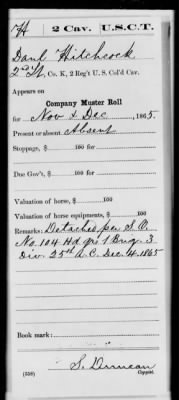 H 2 Cav. U.S.C.T.
Danl Hitchcock
2nd Lt, Co. K, 2 Reg't U. S. Col'd Cav.
Appears on
Company Muster Roll
for Nov & Dec, 1865.
Present or absent Absent
Stoppage, $ 100 for
Due Gov't, $ 100 for
Valuation of horse, $ 100
Valuation of horse equipments, $ 100
Remarks: Detached per S.O.
No. 104 Hd qrs 1 Brig. 3
Div. 25th A.C. Dec. 4 1865
Book mark:
S. Duncan
(358) Copyist.